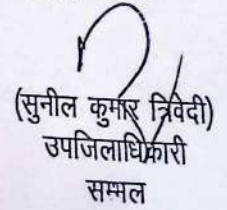 (सुनील कुमार त्रिवेदी)
उपजिलाधिकारी
सम्भल